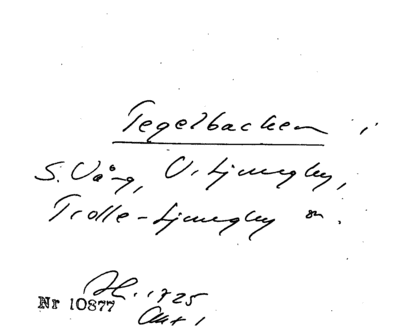 Tegelbacken i
S. Vång, V. Ljungby,
Trolle-Ljungby sn.
H. 1725
Akt 1
Nr 10877